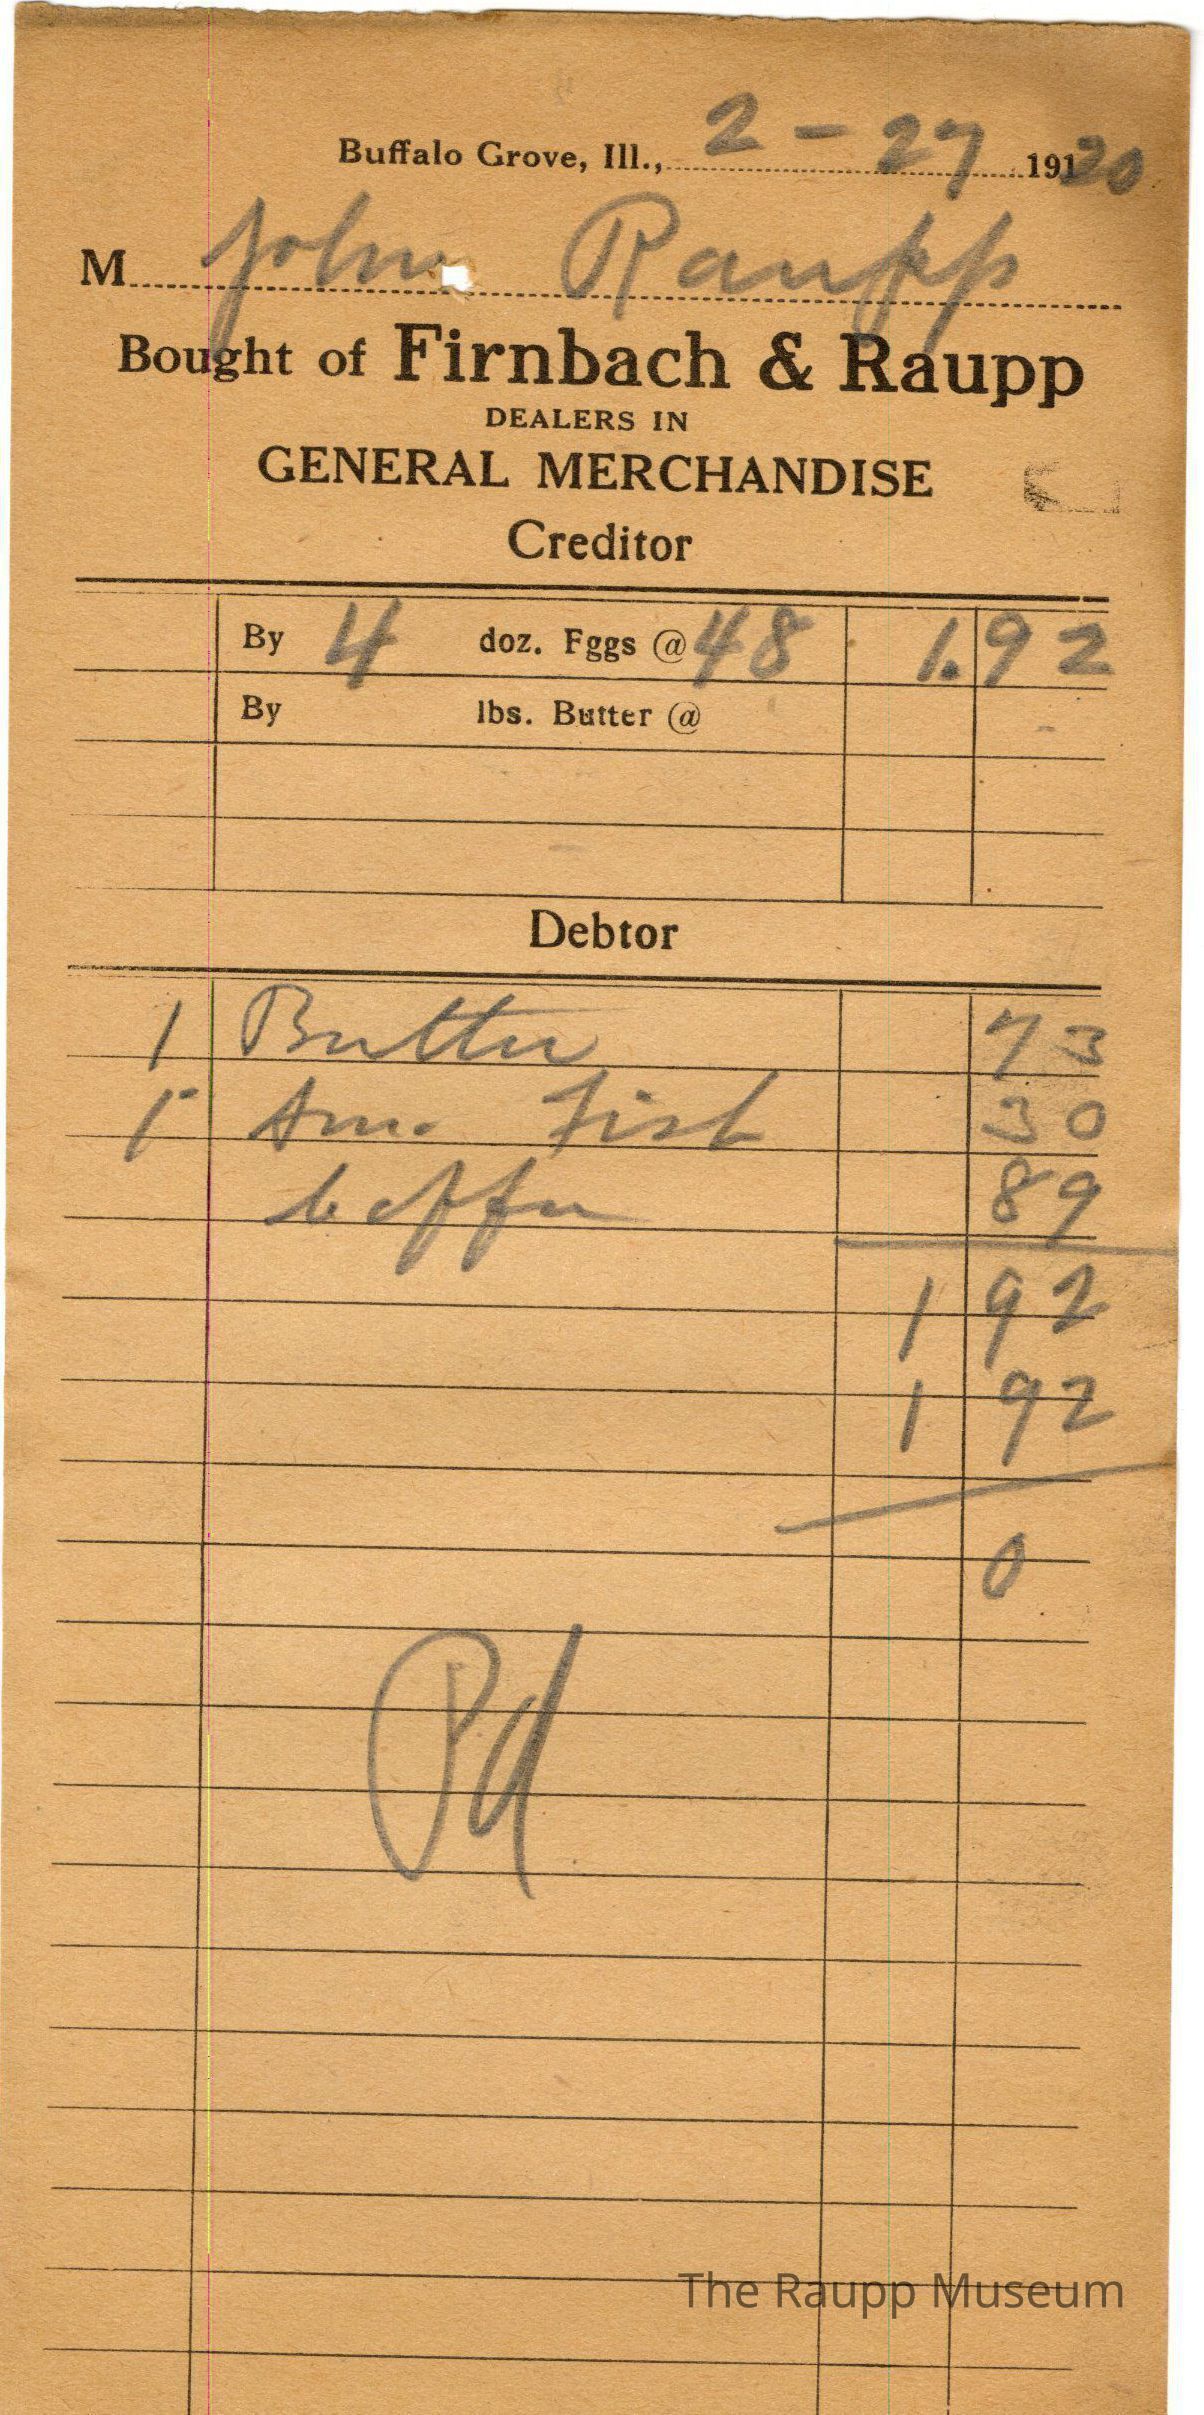 Buffalo Grove, Ill., 2 - 27 19120
M John Raupp
Bought of Firnbach & Raupp
DEALERS IN
GENERAL MERCHANDISE
Creditor
By 4 doz. Fggs @ 48 1.92
By lbs. Butter @
Debtor
1 Butter 73
Fish 30
89
1 92
1 92
0
Pd
The Raupp Museum